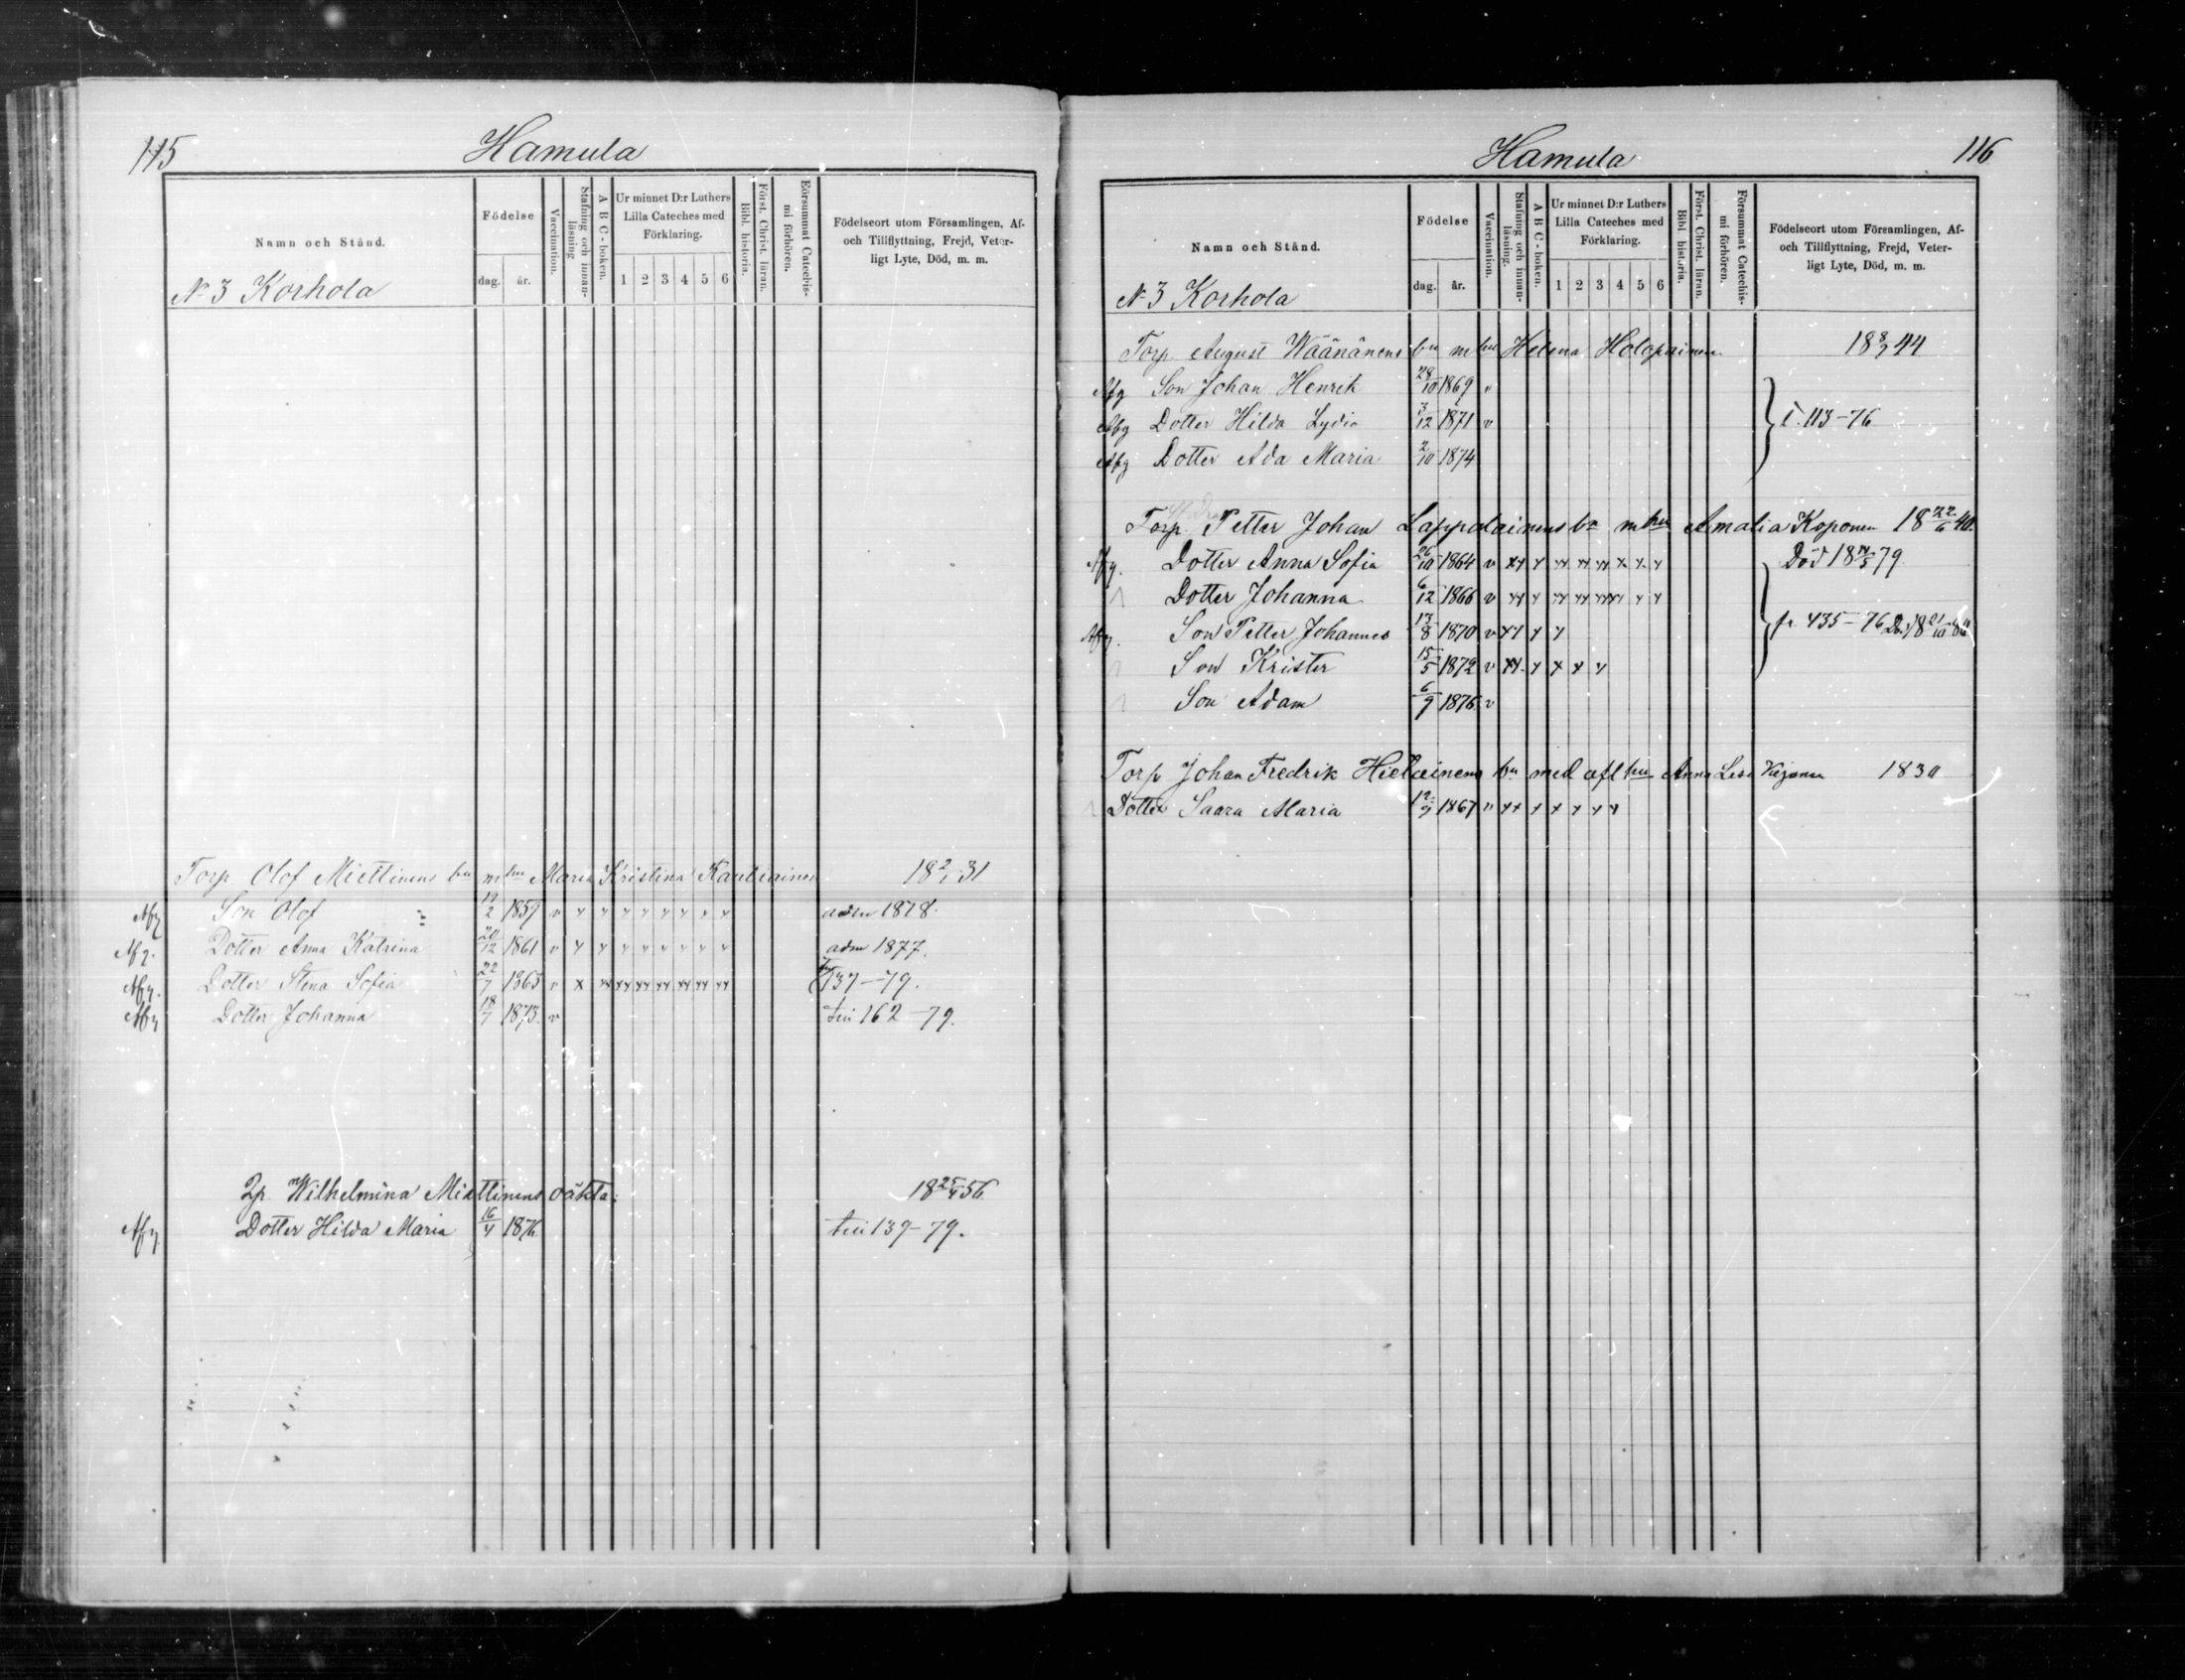 115
Hamula
Namn och Stånd.
Födelse
dag. år.
Vaccination.
Stafning och innan-
läsning
A B C - boken.
Ur minnet D:r Luthers
Lilla Cateches med
Förklaring.
1 2 3 4 5 6
Bibl. historia.
Först. Christ. läran.
Försummat Catechis-
mi förhören.
Födelseort utom Församlingen, Af-
och Tillflyttning, Frejd, Veter-
ligt Lyte, Död, m. m.
No 3 Korhola
Torp Olof Miettinens bn m hu Maria Kristina Kautiainen 18 2/1 31
Afg Son Olof 19/2 1859 v adm 1878.
Afg. Dotter Anna Katrina 20/12 1861 v adm 1877.
Afg. Dotter Stina Sofia 22/7 1863 v x 137-79.
Afg Dotter Johanna 18/7 1873. v 162-79.
Wilhelmina Miettinens oäkta: 18 25/4 56
Afg Dotter Hilda Maria 16/4 1876 139-79.
116
Hamula
Namn och Stånd.
Födelse
dag. år.
Vaccination.
Stafning och innan-
läsning.
A B C - boken.
Ur minnet D:r Luthers
Lilla Cateches med
Förklaring.
1 2 3 4 5 6
Bibl historia.
Först. Christ. läran.
Försummat Catechis-
mi förhören.
Födelseort utom Församlingen, Af-
och Tillflyttning, Frejd, Veter-
ligt Lyte, Död, m. m.
No 3 Korhola
Torp August Wäänänens bn m hu Helena Holopainen 18 8/7 44
Afg Son Johan Henrik 28/10 1869 v
Afg Dotter Hilda Lydia 3/12 1871 v 113-76
Afg Dotter Ada Maria 2/10 1874
Torp. Petter Johan Lappalainens bn m hu Amalia Koponen 18 22/6 40.
Afg. Dotter Anna Sofia 26/10 1864 v Död 18 14/5 79.
Dotter Johanna 6/12 1866 v
Afg. Son Petter Johannes 17/8 1870 v fr. 435-76
Son Krister 15/5 1872 v
Son Adam 6/9 1876 v
Torp Johan Fredrik Hielainens bn med afl hu Anna Lisa 1830
Dotter Saara Maria 12/9 1867 v